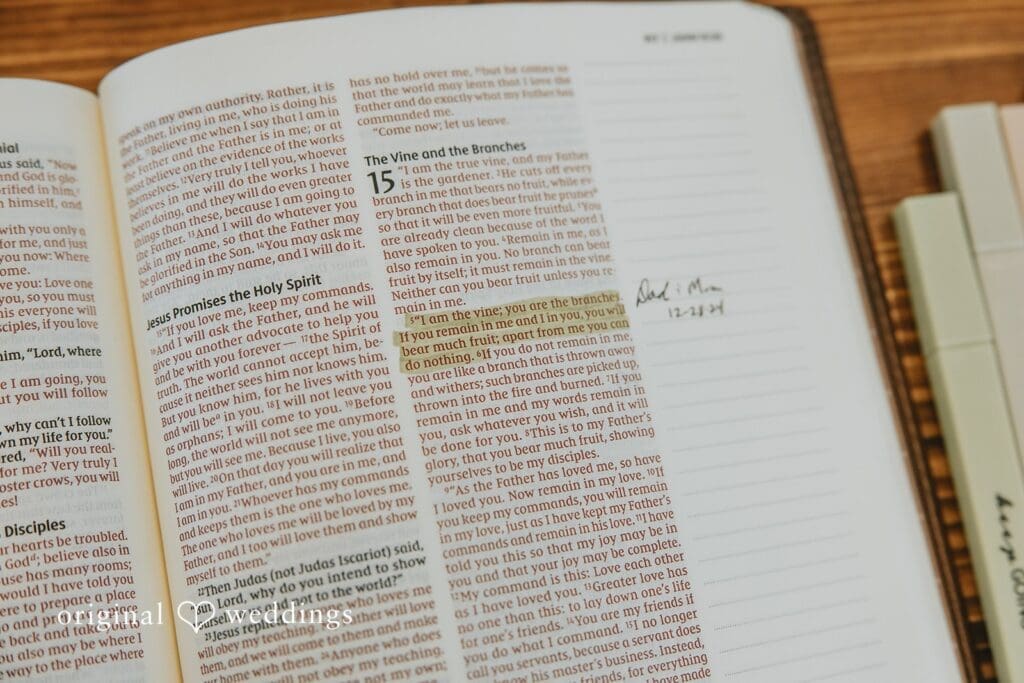 nial
us said, "Now
and God is glo-
rified in him,
n himself, and
with you only a
for me, and just
you now: Where
ome.
ve you: Love one
you, so you must
this everyone will
sciples, if you love
him, "Lord, where
e I am going, you
but you will follow
, why can't I follow
wn my life for you."
red, "Will you real-
for me? Very truly I
oster crows, you will
es!
s Disciples
ur hearts be troubled.
God; believe also in
use has many rooms;
would I have told you
ere to prepare a place
o and prepare a place
e back and take you to
ou also may be where I
way to the place where
speak on my own authority. Rather, it is
the Father, living in me, who is doing his
work. 11Believe me when I say that I am in
the Father and the Father is in me; or at
least believe on the evidence of the works
themselves. 12Very truly I tell you, whoever
believes in me will do the works I have
been doing, and they will do even greater
things than these, because I am going to
the Father. 13And I will do whatever you
ask in my name, so that the Father may
be glorified in the Son. 14You may ask me
for anything in my name, and I will do it.
Jesus Promises the Holy Spirit
15"If you love me, keep my commands.
16And I will ask the Father, and he will
give you another advocate to help you
and be with you forever— 17the Spirit of
truth. The world cannot accept him, be-
cause it neither sees him nor knows him.
But you know him, for he lives with you
and will be in you. 18I will not leave you
as orphans; I will come to you. 19Before
long, the world will not see me anymore,
but you will see me. Because I live, you also
will live. 20On that day you will realize that
I am in my Father, and you are in me, and
I am in you. 21Whoever has my commands
and keeps them is the one who loves me.
The one who loves me will be loved by my
Father, and I too will love them and show
myself to them."
22Then Judas (not Judas Iscariot) said,
"But, Lord, why do you intend to show
yourself to us and not to the world?"
23Jesus replied, who loves me
will obey my teaching. My Father will love
them, and we will come to them and make
our home with them. 24Anyone who does
not love me will not obey my teaching.
not my own;
has no hold over me, 31but he comes so
that the world may learn that I love the
Father and do exactly what my Father has
commanded me.
"Come now; let us leave.
The Vine and the Branches
15 "I am the true vine, and my Father
is the gardener. 2He cuts off every
branch in me that bears no fruit, while ev-
ery branch that does bear fruit he prunes
so that it will be even more fruitful. 3You
are already clean because of the word I
have spoken to you. 4Remain in me, as I
also remain in you. No branch can bear
fruit by itself; it must remain in the vine.
Neither can you bear fruit unless you re-
main in me.
5"I am the vine; you are the branches.
If you remain in me and I in you, you will
bear much fruit; apart from me you can
do nothing. 6If you do not remain in me,
you are like a branch that is thrown away
and withers; such branches are picked up,
thrown into the fire and burned. 7If you
remain in me and my words remain in
you, ask whatever you wish, and it will
be done for you. 8This is to my Father's
glory, that you bear much fruit, showing
yourselves to be my disciples.
9"As the Father has loved me, so have
I loved you. Now remain in my love. 10If
you keep my commands, you will remain
in my love, just as I have kept my Father's
commands and remain in his love. 11I have
told you this so that my joy may be in
you and that your joy may be complete.
12My command is this: Love each other
as I have loved you. 13Greater love has
no one than this: to lay down one's life
for one's friends. 14You are my friends if
you do what I command. 15I no longer
call you servants, because a servant does
not know his master's business. Instead,
I have called you friends, for everything
I have made
Dad & Mom
12-28-24
original weddings